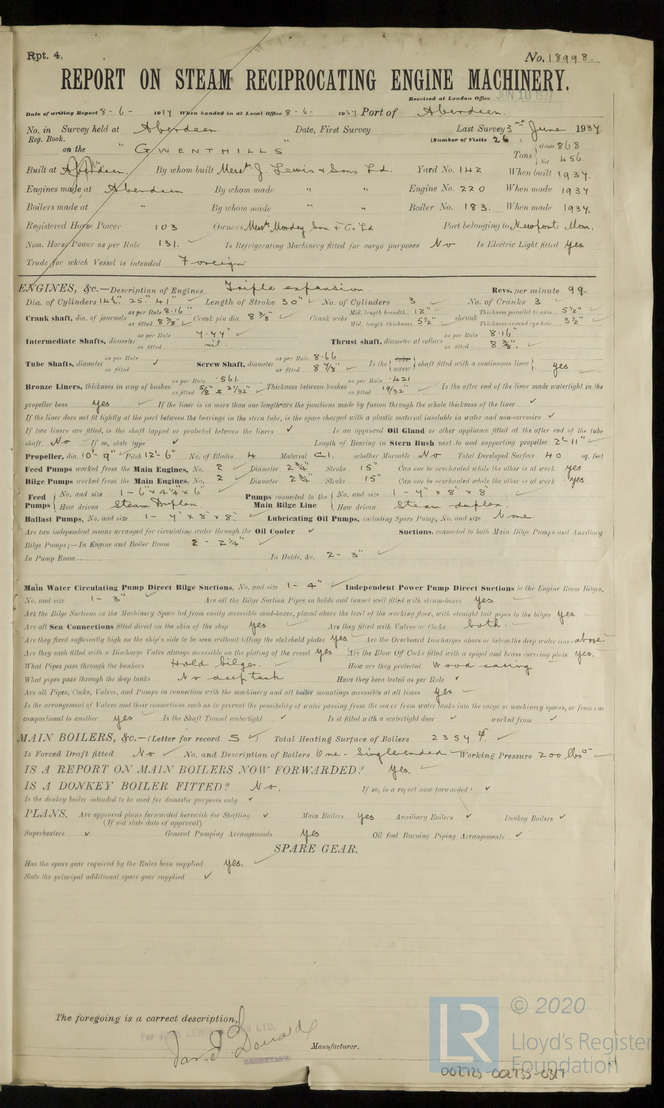 Rpt. 4.
No. 18998.
REPORT ON STEAM RECIPROCATING ENGINE MACHINERY.
Received at London Office JUN 10 1937
Date of writing Report 8-6- 1937 When handed in at Local Office 8-6- 1937 Port of Aberdeen.
No. in Survey held at Aberdeen Date, First Survey Last Survey 3rd June 1937
Reg. Book. (Number of Visits 26
on the " GWENTHILLS " Tons Gross 868 Net 456
Built at Aberdeen By whom built Messrs J. Lewis & Sons Ltd. Yard No. 142 When built 1937.
Engines made at Aberdeen By whom made " " Engine No. 220 When made 1937
Boilers made at " By whom made " " Boiler No. 183. When made 1937.
Registered Horse Power 103 Owners Messrs Mordey Son & Co Ltd Port belonging to Newport Mon.
Nom. Horse Power as per Rule 131. Is Refrigerating Machinery fitted for cargo purposes No Is Electric Light fitted Yes
Trade for which Vessel is intended Foreign
ENGINES, &c.—Description of Engines Triple expansion. Revs. per minute 99.
Dia. of Cylinders 14½" 25" 41" Length of Stroke 30" No. of Cylinders 3 No. of Cranks 3
Crank shaft, dia. of journals as per Rule 8.16" as fitted 8⅜" Crank pin dia. 8⅜" Crank webs Mid. length breadth 12" Mid. length thickness 5½" shrunk Thickness parallel to axis 5½" Thickness around eye-hole 3½"
Intermediate Shafts, diameter as per Rule 7.77" as fitted nil Thrust shaft, diameter at collars as per Rule 8.16" as fitted 8⅜"
Tube Shafts, diameter as per Rule as fitted Screw Shaft, diameter as per Rule 8.66 as fitted 8⅞" Is the tube screw shaft fitted with a continuous liner yes
Bronze Liners, thickness in way of bushes as per Rule .561 as fitted 5/8" & 21/32" Thickness between bushes as per Rule .421 as fitted 19/32" Is the after end of the liner made watertight in the
propeller boss yes If the liner is in more than one length are the junctions made by fusion through the whole thickness of the liner
If the liner does not fit tightly at the part between the bearings in the stern tube, is the space charged with a plastic material insoluble in water and non-corrosive
If two liners are fitted, is the shaft lapped or protected between the liners Is an approved Oil Gland or other appliance fitted at the after end of the tube
shaft No If so, state type Length of Bearing in Stern Bush next to and supporting propeller 2'-11"
Propeller, dia. 10'-9" Pitch 12'-6" No. of Blades 4 Material C.I. whether Moveable No Total Developed Surface 40 sq. feet
Feed Pumps worked from the Main Engines, No. 2 Diameter 2¾" Stroke 15" Can one be overhauled while the other is at work yes
Bilge Pumps worked from the Main Engines, No. 2 Diameter 2¾" Stroke 15" Can one be overhauled while the other is at work yes
Feed Pumps No. and size 1-6"x4¼"x6" Pumps connected to the Main Bilge Line No. and size 1-7"x8"x8"
How driven Steam Duplex How driven Steam duplex
Ballast Pumps, No. and size 1-7"x8"x8" Lubricating Oil Pumps, including Spare Pump, No. and size None.
Are two independent means arranged for circulating water through the Oil Cooler Suctions, connected to both Main Bilge Pumps and Auxiliary
Bilge Pumps;—In Engine and Boiler Room 2-2¼"
In Pump Room In Holds, &c. 2-3"
Main Water Circulating Pump Direct Bilge Suctions, No. and size 1-4" Independent Power Pump Direct Suctions to the Engine Room Bilges,
No. and size 1-3" Are all the Bilge Suction Pipes in holds and tunnel well fitted with strum-boxes yes
Are the Bilge Suctions in the Machinery Space led from easily accessible mud-boxes, placed above the level of the working floor, with straight tail pipes to the bilges yes
Are all Sea Connections fitted direct on the skin of the ship yes Are they fitted with Valves or Cocks both
Are they fixed sufficiently high on the ship's side to be seen without lifting the stokehold plates yes Are the Overboard Discharges above or below the deep water line above
Are they each fitted with a Discharge Valve always accessible on the plating of the vessel yes Are the Blow Off Cocks fitted with a spigot and brass covering plate yes.
What Pipes pass through the bunkers Hold bilges. How are they protected Wood casing
What pipes pass through the deep tanks No deep tank Have they been tested as per Rule
Are all Pipes, Cocks, Valves, and Pumps in connection with the machinery and all boiler mountings accessible at all times yes
Is the arrangement of Valves and their connections such as to prevent the possibility of water passing from the sea or from water tanks into the cargo or machinery spaces, or from one
compartment to another yes Is the Shaft Tunnel watertight Is it fitted with a watertight door worked from
MAIN BOILERS, &c.—(Letter for record S) Total Heating Surface of Boilers 2354
Is Forced Draft fitted No No. and Description of Boilers One - Single ended Working Pressure 200 lbs
IS A REPORT ON MAIN BOILERS NOW FORWARDED? Yes.
IS A DONKEY BOILER FITTED? No. If so, is a report now forwarded?
Is the donkey boiler intended to be used for domestic purposes only
PLANS. Are approved plans forwarded herewith for Shafting Main Boilers Yes Auxiliary Boilers Donkey Boilers
(If not state date of approval)
Superheaters General Pumping Arrangements Yes Oil fuel Burning Piping Arrangements
SPARE GEAR.
Has the spare gear required by the Rules been supplied yes.
State the principal additional spare gear supplied
The foregoing is a correct description,
For JOHN LEWIS & SONS LTD.
SECRETARY
Manufacturer.
LR
© 2020
Lloyd's Register
Foundation
002725-002735-0317